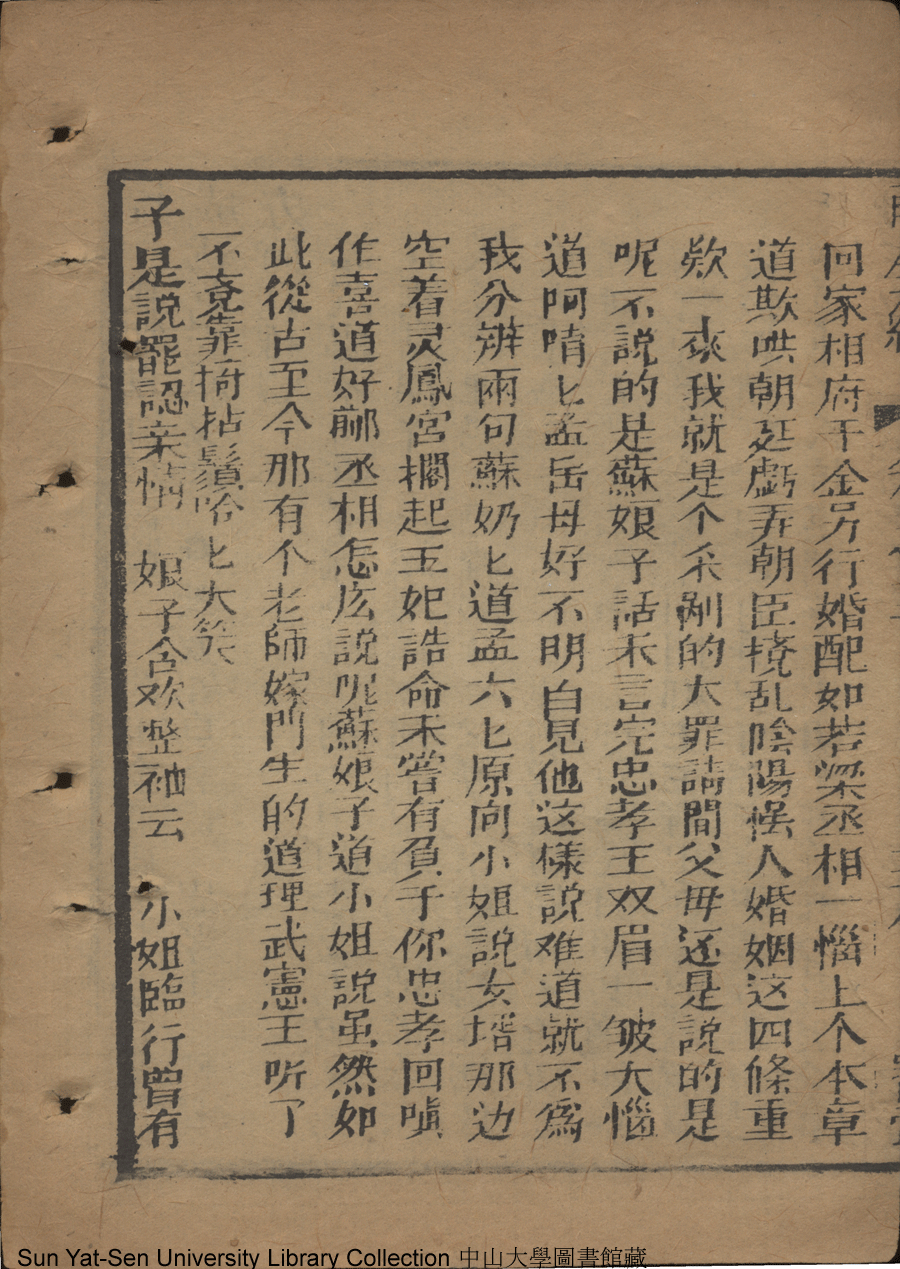 回家相府千金另行婚配如若梁丞相一惱上个本章
道欺哄朝廷戯弄朝臣撓乱陰陽悞人婚姻这四條重
欵一來我就是个采剮的大罪請問父母还是說的是
呢不說的是蘇娘子話未言完忠孝王双眉一皱大惱
道阿唷匕孟岳母好不明白見他这樣說难道就不爲
我分辨兩句蘇奶匕道孟六匕原向小姐說女壻那边
空着灵鳳宮擱起王妃誥命未嘗有負于你忠孝回嗔
作喜道好酈丞相怎庅說呢蘇娘子道小姐說虽然如
此從古至今那有个老師嫁門生的道理武憲王听了
不竟靠椅拈鬚哈匕大笑
子是說罷認亲情 娘子含欢整袖云 小姐臨行曾有
Sun Yat-Sen University Library Collection 中山大學圖書館藏